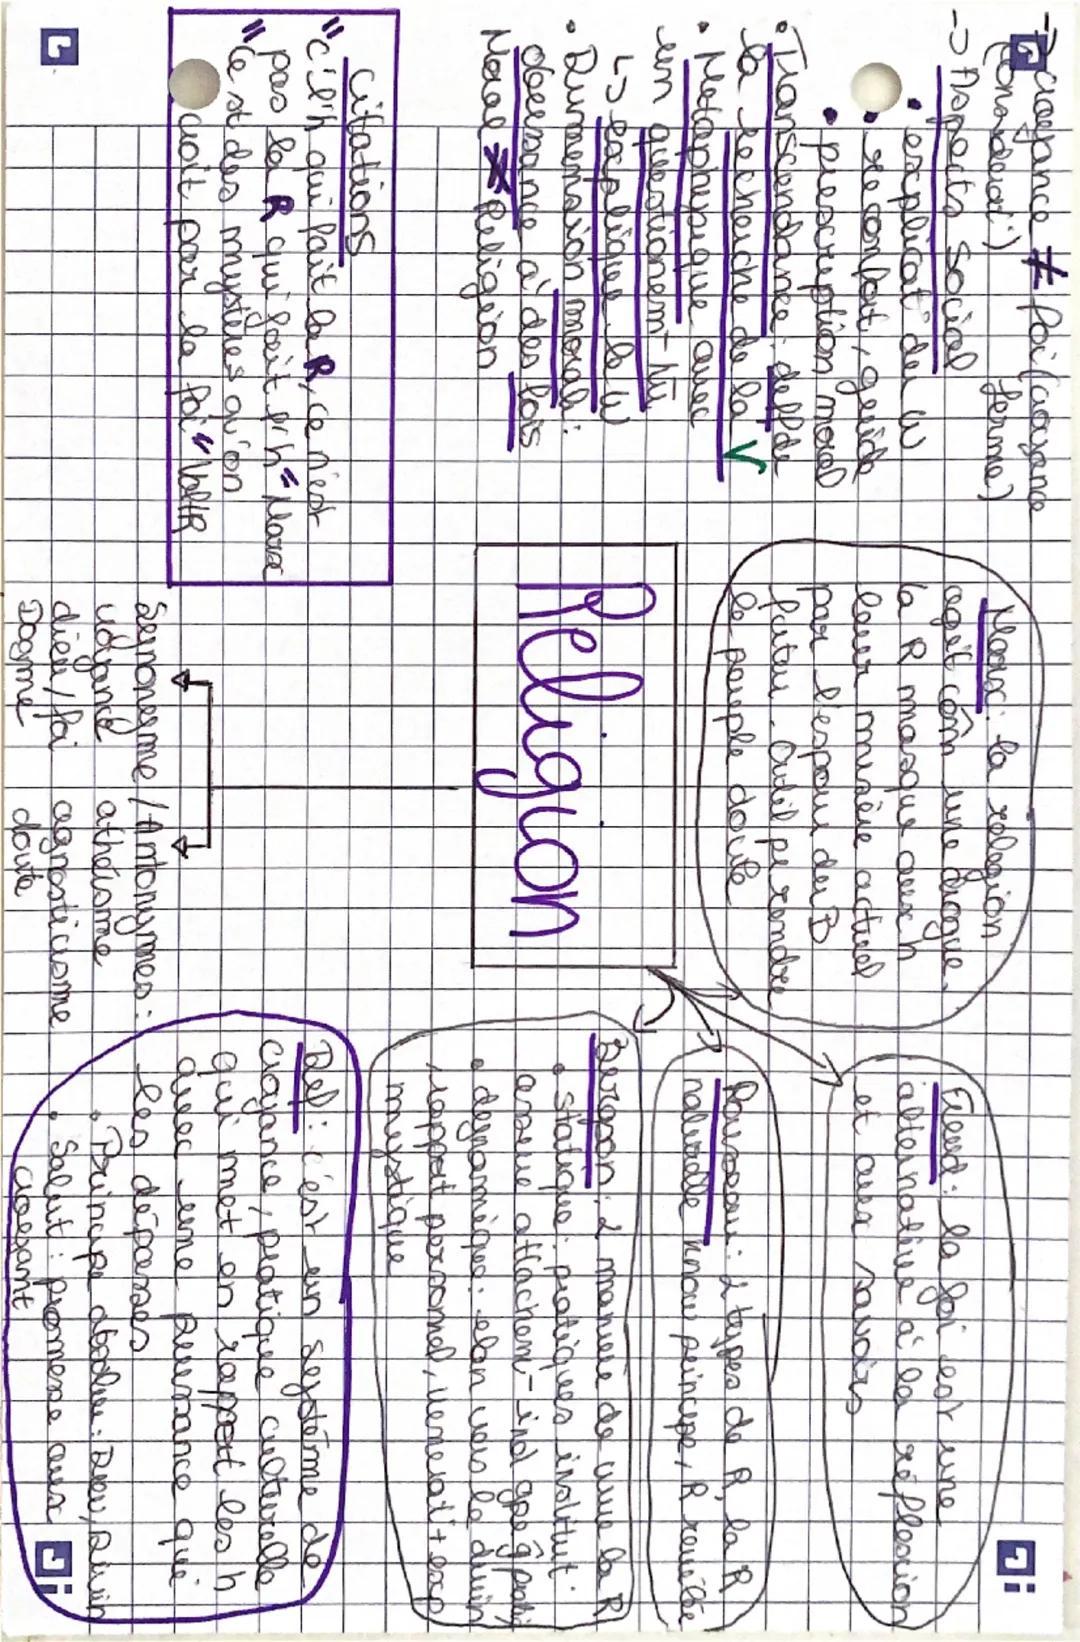 -> Croyance ≠ foi (croyance
(considéré) ferme)
-> Aspects social
• explicat° du W
• réconfort, guide
• prescreption moral
• Transcendance: delf de
la recherche de la V
• Métaphysique avec
un questionem-hu
↳ explique le W
• Dimmension moral:
obeissance à des lois
Morale ≠ Religion
Citations
"C'l'h qui fait la R, ce n'est
pas la R qui fait l'h" Marx
"Ce st des mystères qu'on
croit par la foi" Voltr
Marx: la religion
agit comm une drogue.
la R masque aux h
leur misère actuel
par l'espoir du B
futur. Outil pr rendre
le peuple docile
Religion
Synonyme / Antonymes:
croyance athéisme
dieu/foi agnosticisme
Dogme doute
Freud: la foi est une
alternative à la réflexion
et aux savoirs
Rousseau: 2 types de R, la R
naturelle principe, R révélée
Bergson: 2 manière de vivre la R
• statique: pratiques institut°
assure attachem-ind
• dynamique: élan vers le divin
rapport personnel, vénérat° + exp
mystique
Def: c'est un système de
croyance / pratique culturelle
qui met en rapport les h
avec une puissance qui
les dépasses
• Principe absolu: Dieu, Divin
• Salut: promesse aux
croyant